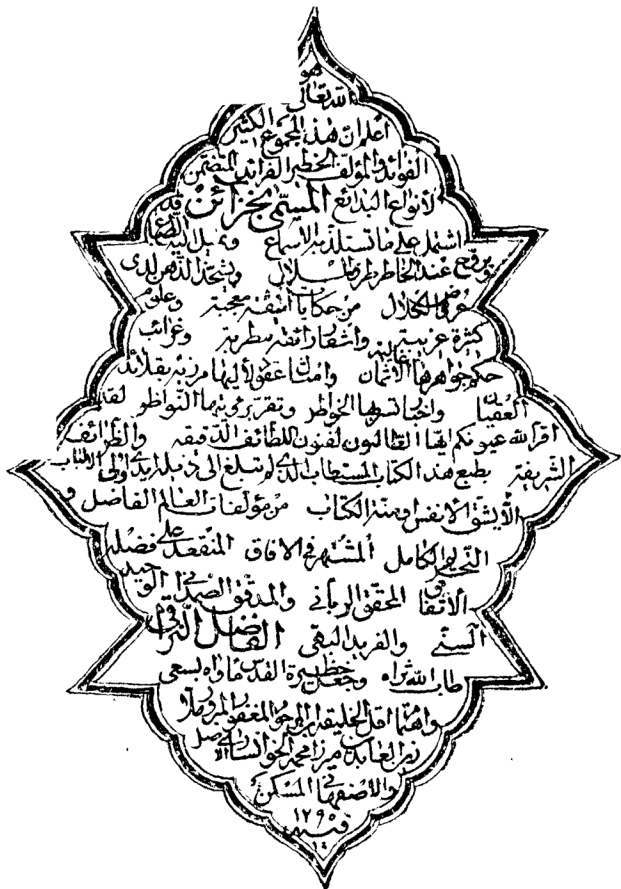 هو
الله تعالى
اعلم ان هذا المجموع الكثير
الفوائد والمؤلف الخطير الفرائد المتضمن
لأنواع البدائع المسمّى بخزائن قد
اشتمل على ما تستلذ به الأسماع وتميل اليه الطباع
ويروّح عند الخاطر بالملال ويشحذ الذهن لدى
عروض الكلال من حكايات انيقة معجبة وعلوم
كثيرة غريبة واشعار رائقة مطربة وغرائب
حكم جواهرها غالية الاثمان وامثال عقود لأليها مزرية بقلائد
العقيان واخبار تسر بها الخواطر وتقرّ برؤيتها النواظر لقد
اقر الله عيونكم ايها الطالبون لفنون اللطائف الدقيقة والظرائف
الشريفة بطبع هذا الكتاب المستطاب الذى لم تبلغ الى ذيله ايدى اولى الالباب
الأنفس من مؤلفات العالم الفاضل و
النحرير الكامل المشتهر فى الآفاق المنعقد على فضله
الاتفاق المحقق الربانى والمدقق الصمدانى الوحيد
السنّى والفريد البقى الفاضل النراقى
طاب الله ثراه وجعل حظيرة القدس مأواه بسعى
واهتمام اقل الخليقة ابن المرحوم المغفور المبرور ملا
زين العابدين ميرزا محمد الخوانسارى الاصل
والأصفهانى المسكن
فى سنة ١٢٩٥